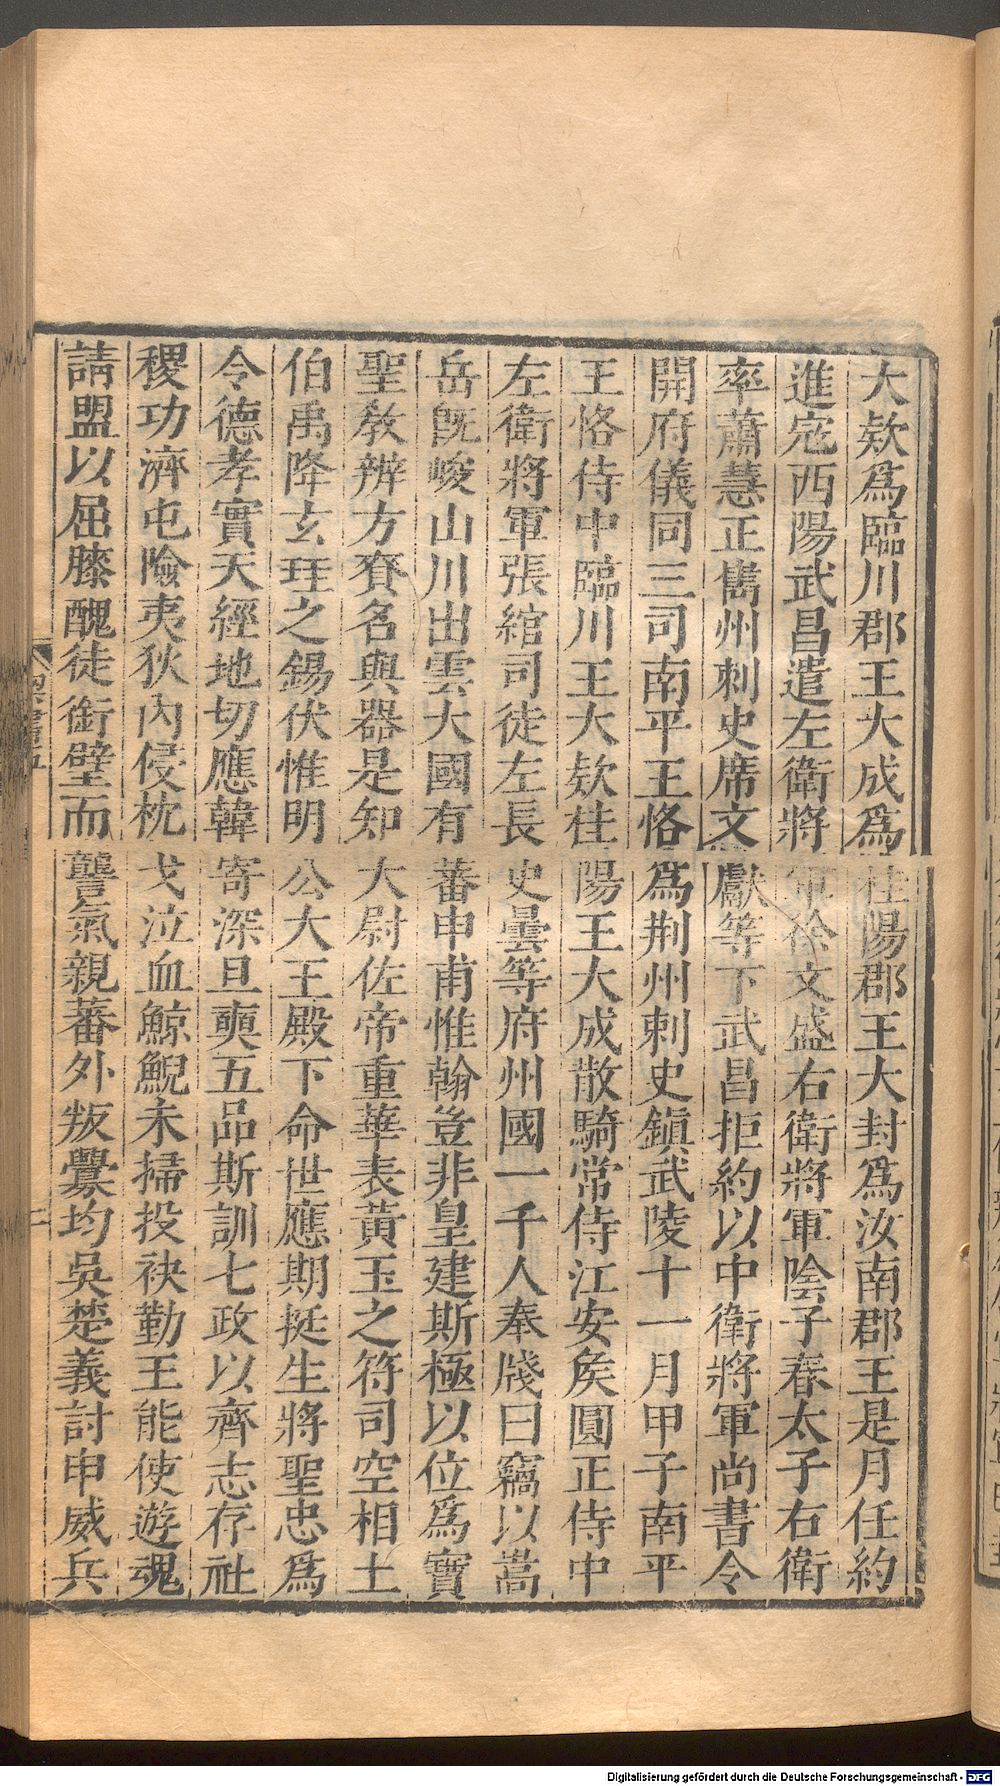 大欵爲臨川郡王大成爲桂陽郡王大封爲汝南郡王是月任約
進宼西陽武昌遣左衛將軍徐文盛右衛將軍陰子春太子右衛
率蕭慧正巂州刺史席文獻等下武昌拒約以中衛將軍尚書令
開府儀同三司南平王恪爲荆州刺史鎮武陵十一月甲子南平
王恪侍中臨川王大欵桂陽王大成散騎常侍江安矦圓正侍中
左衛將軍張綰司徒左長史曇等府州國一千人奉牋曰竊以嵩
岳旣峻山川出雲大國有蕃申甫惟翰豈非皇建斯極以位爲寶
聖敎辨方賚名與器是知大尉佐帝重華表黃玉之符司空相土
伯禹降玄珪之錫伏惟明公大王殿下命世應期挺生將聖忠爲
令德孝實天經地切應韓寄深旦奭五品斯訓七政以齊志存社
稷功濟屯險夷狄內侵枕戈泣血鯨鯢未掃投袂勤王能使遊魂
請盟以屈膝醜徒銜璧而讋氣親蕃外叛釁均吳楚義討申威兵
Digitalisierung gefördert durch die Deutsche Forschungsgemeinschaft - DFG